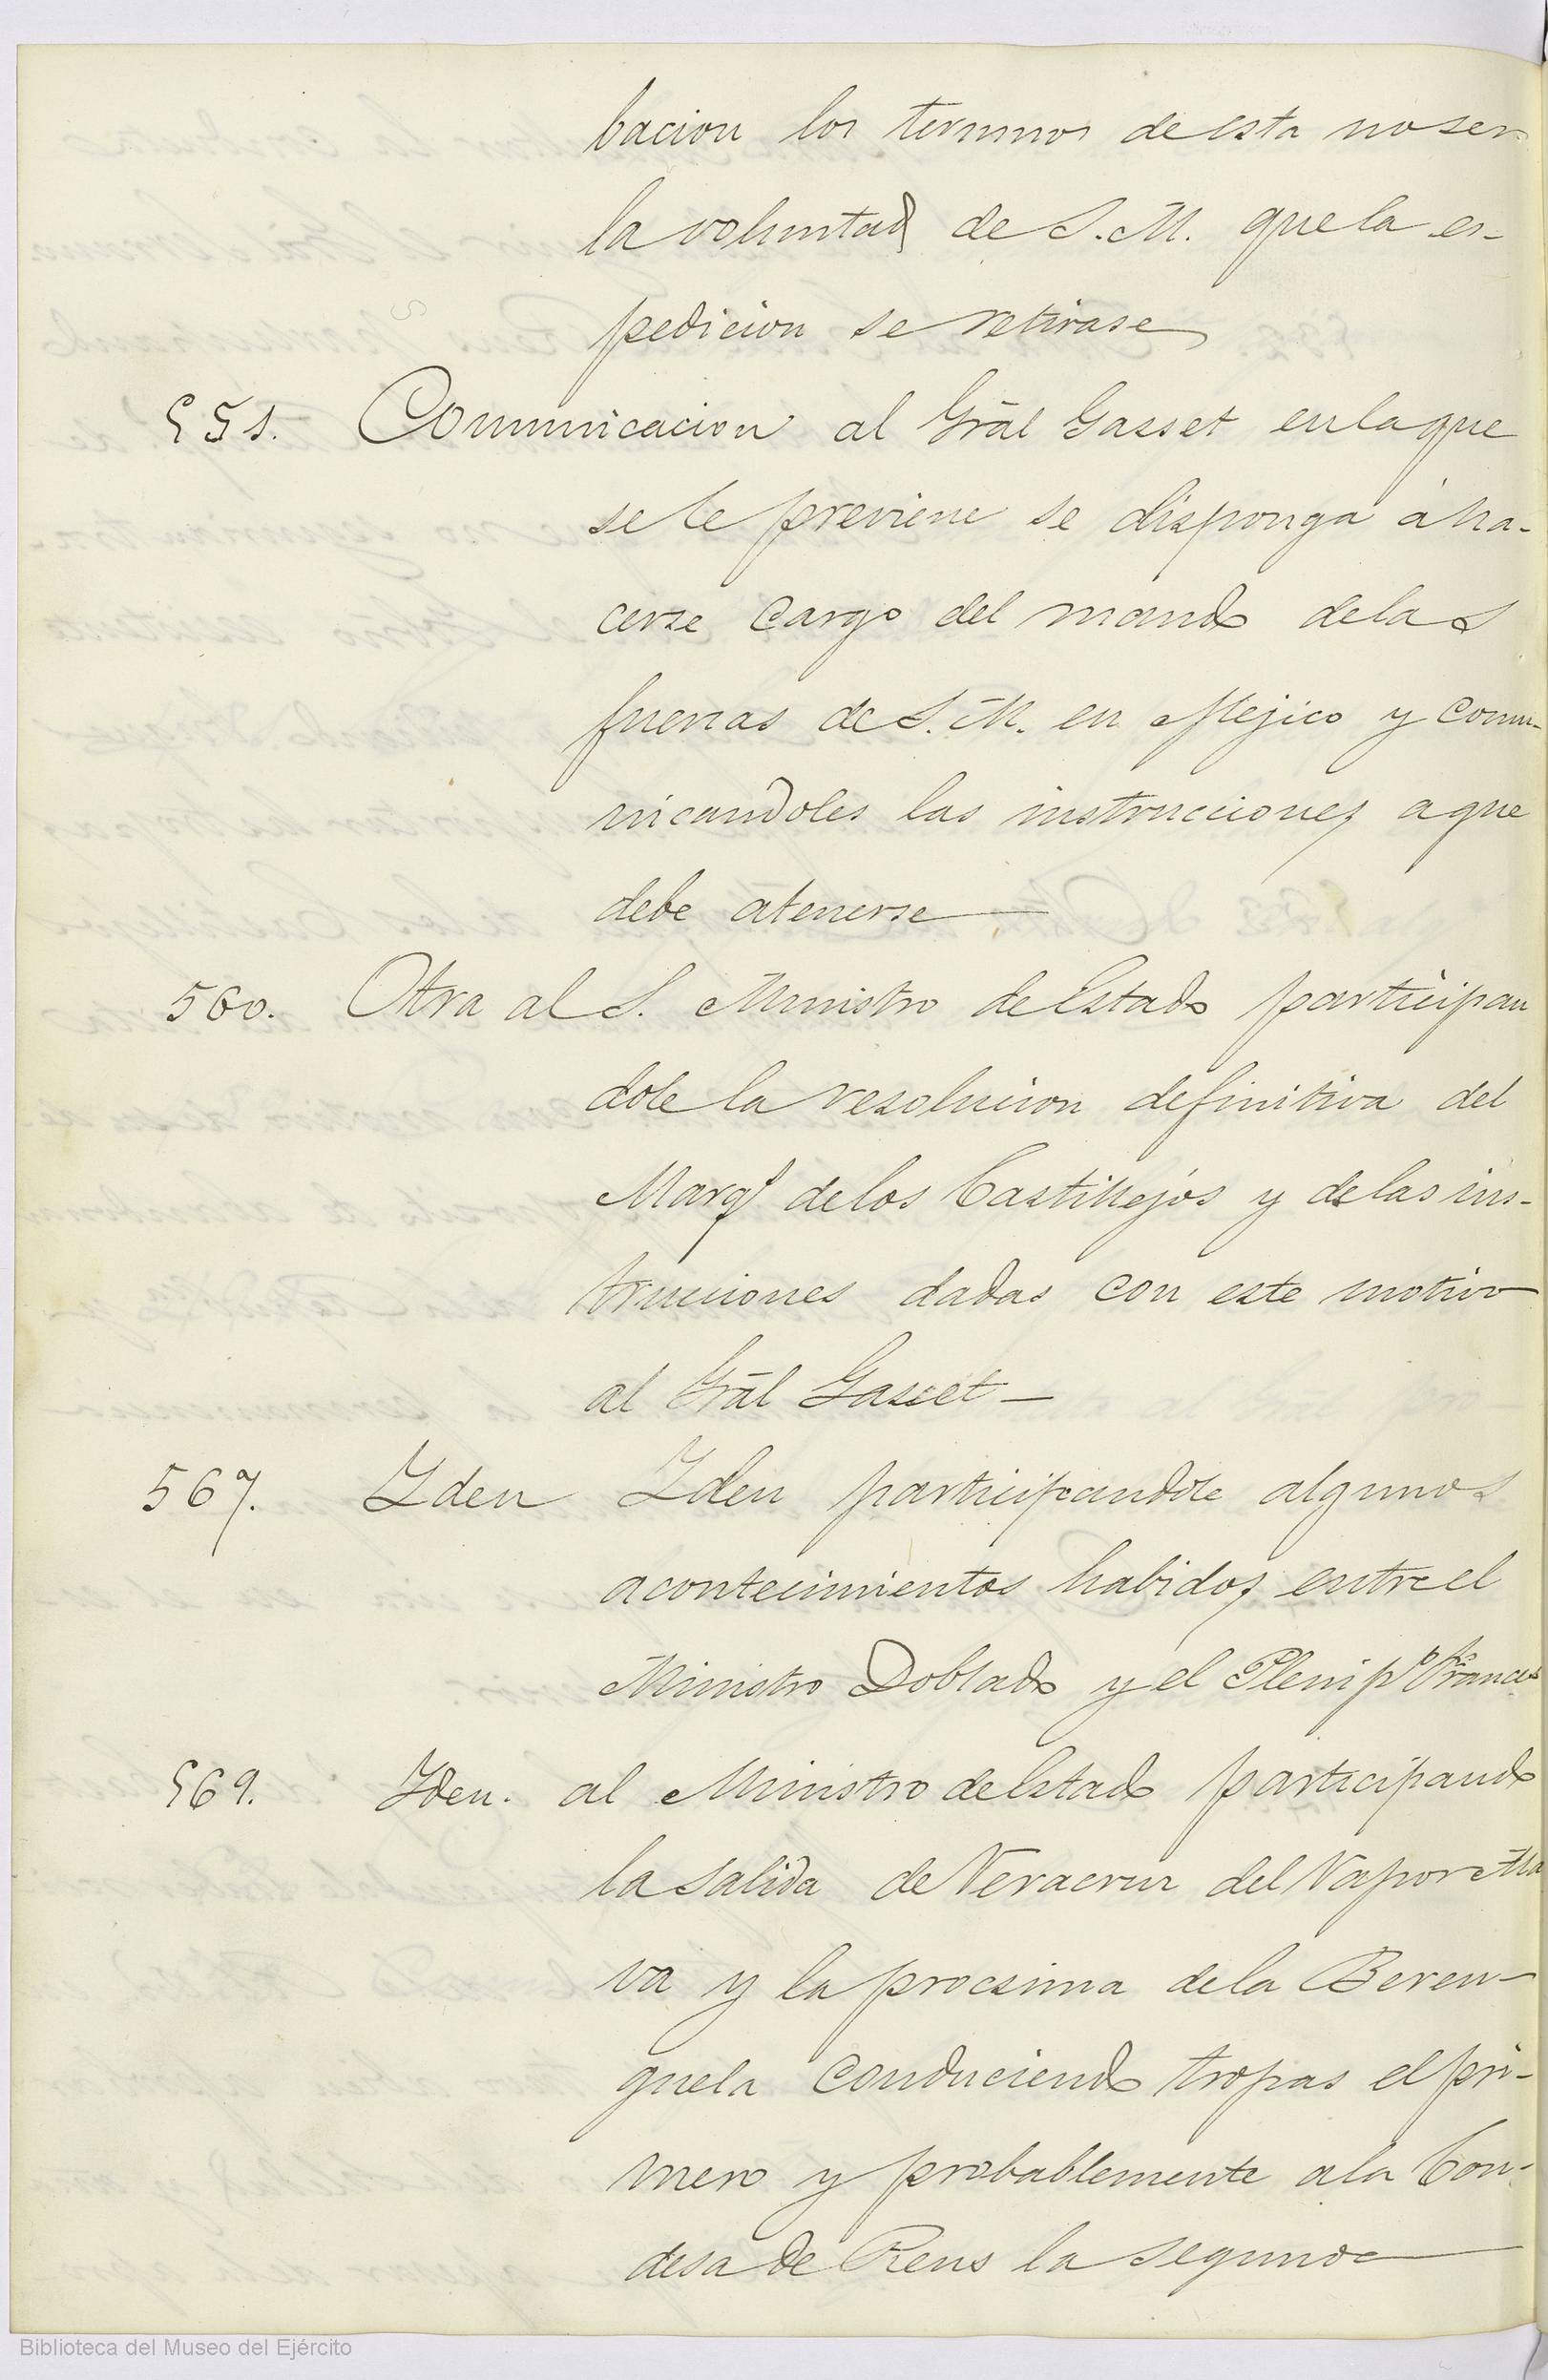 bacion los terminos de esta no ser
la voluntad de S. M. que la es-
pedicion se retirase
551. Comunicacion al Grãl Gasset en la que
se le previene se disponga á ha-
cerse cargo del mando de las
fuerzas de S. M. en Mejico y comu-
nicandoles las instrucciones a que
debe atenerse
560. Otra al S. Ministro de Estado participan
dole la resolucion definitiva del
Marqs de los Castillejos y de las ins-
trucciones dadas con este motivo
al Grãl Gasset
567. Yden Yden participandole algunos
acontecimientos habidos entre el
Ministro Doblado y el Plenipo Frances
569. Yden. al Ministro de Estado participando
la salida de Veracruz del Vapor Ala
va y la procsima de la Beren-
guela conduciendo tropas el pri-
mero y probablemente a la Con-
desa de Reus la segunda
Biblioteca del Museo del Ejército